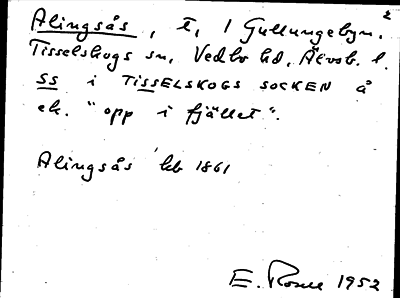 2
Alingsås, t, 1 Gullungebyn.
Tisselskogs sn, Vedbo hd, Älvsb. l.
SS i TISSELSKOGS SOCKEN å
ek. "opp i fjället".
Alingsås hb 1861
E. Rosell 1952